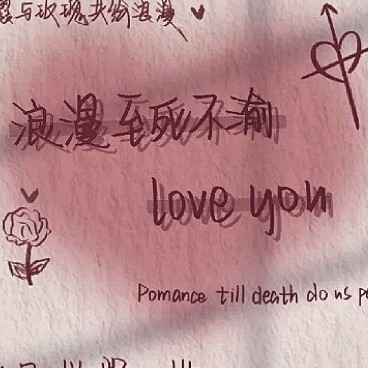 与玫瑰共给浪漫
浪漫至死不渝
love you
Pomance till death do us